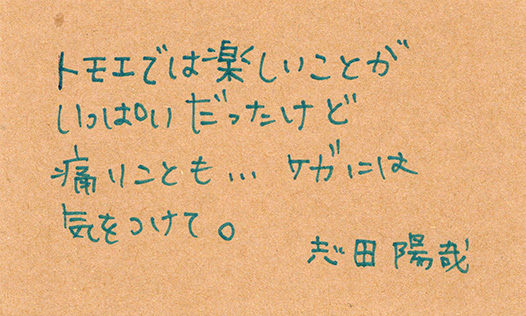 トモエでは楽しいことが
いっぱいだったけど
痛いことも... ケガには
気をつけて。
志田陽哉